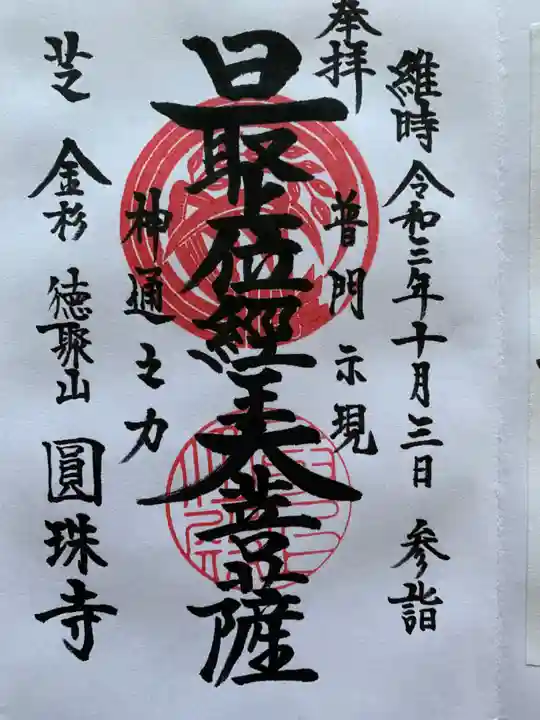 奉拝
維時 令和三年十月三日 参詣
普門示現
最上位経王大菩薩
神通之力
芝 金杉 徳聚山 圓珠寺